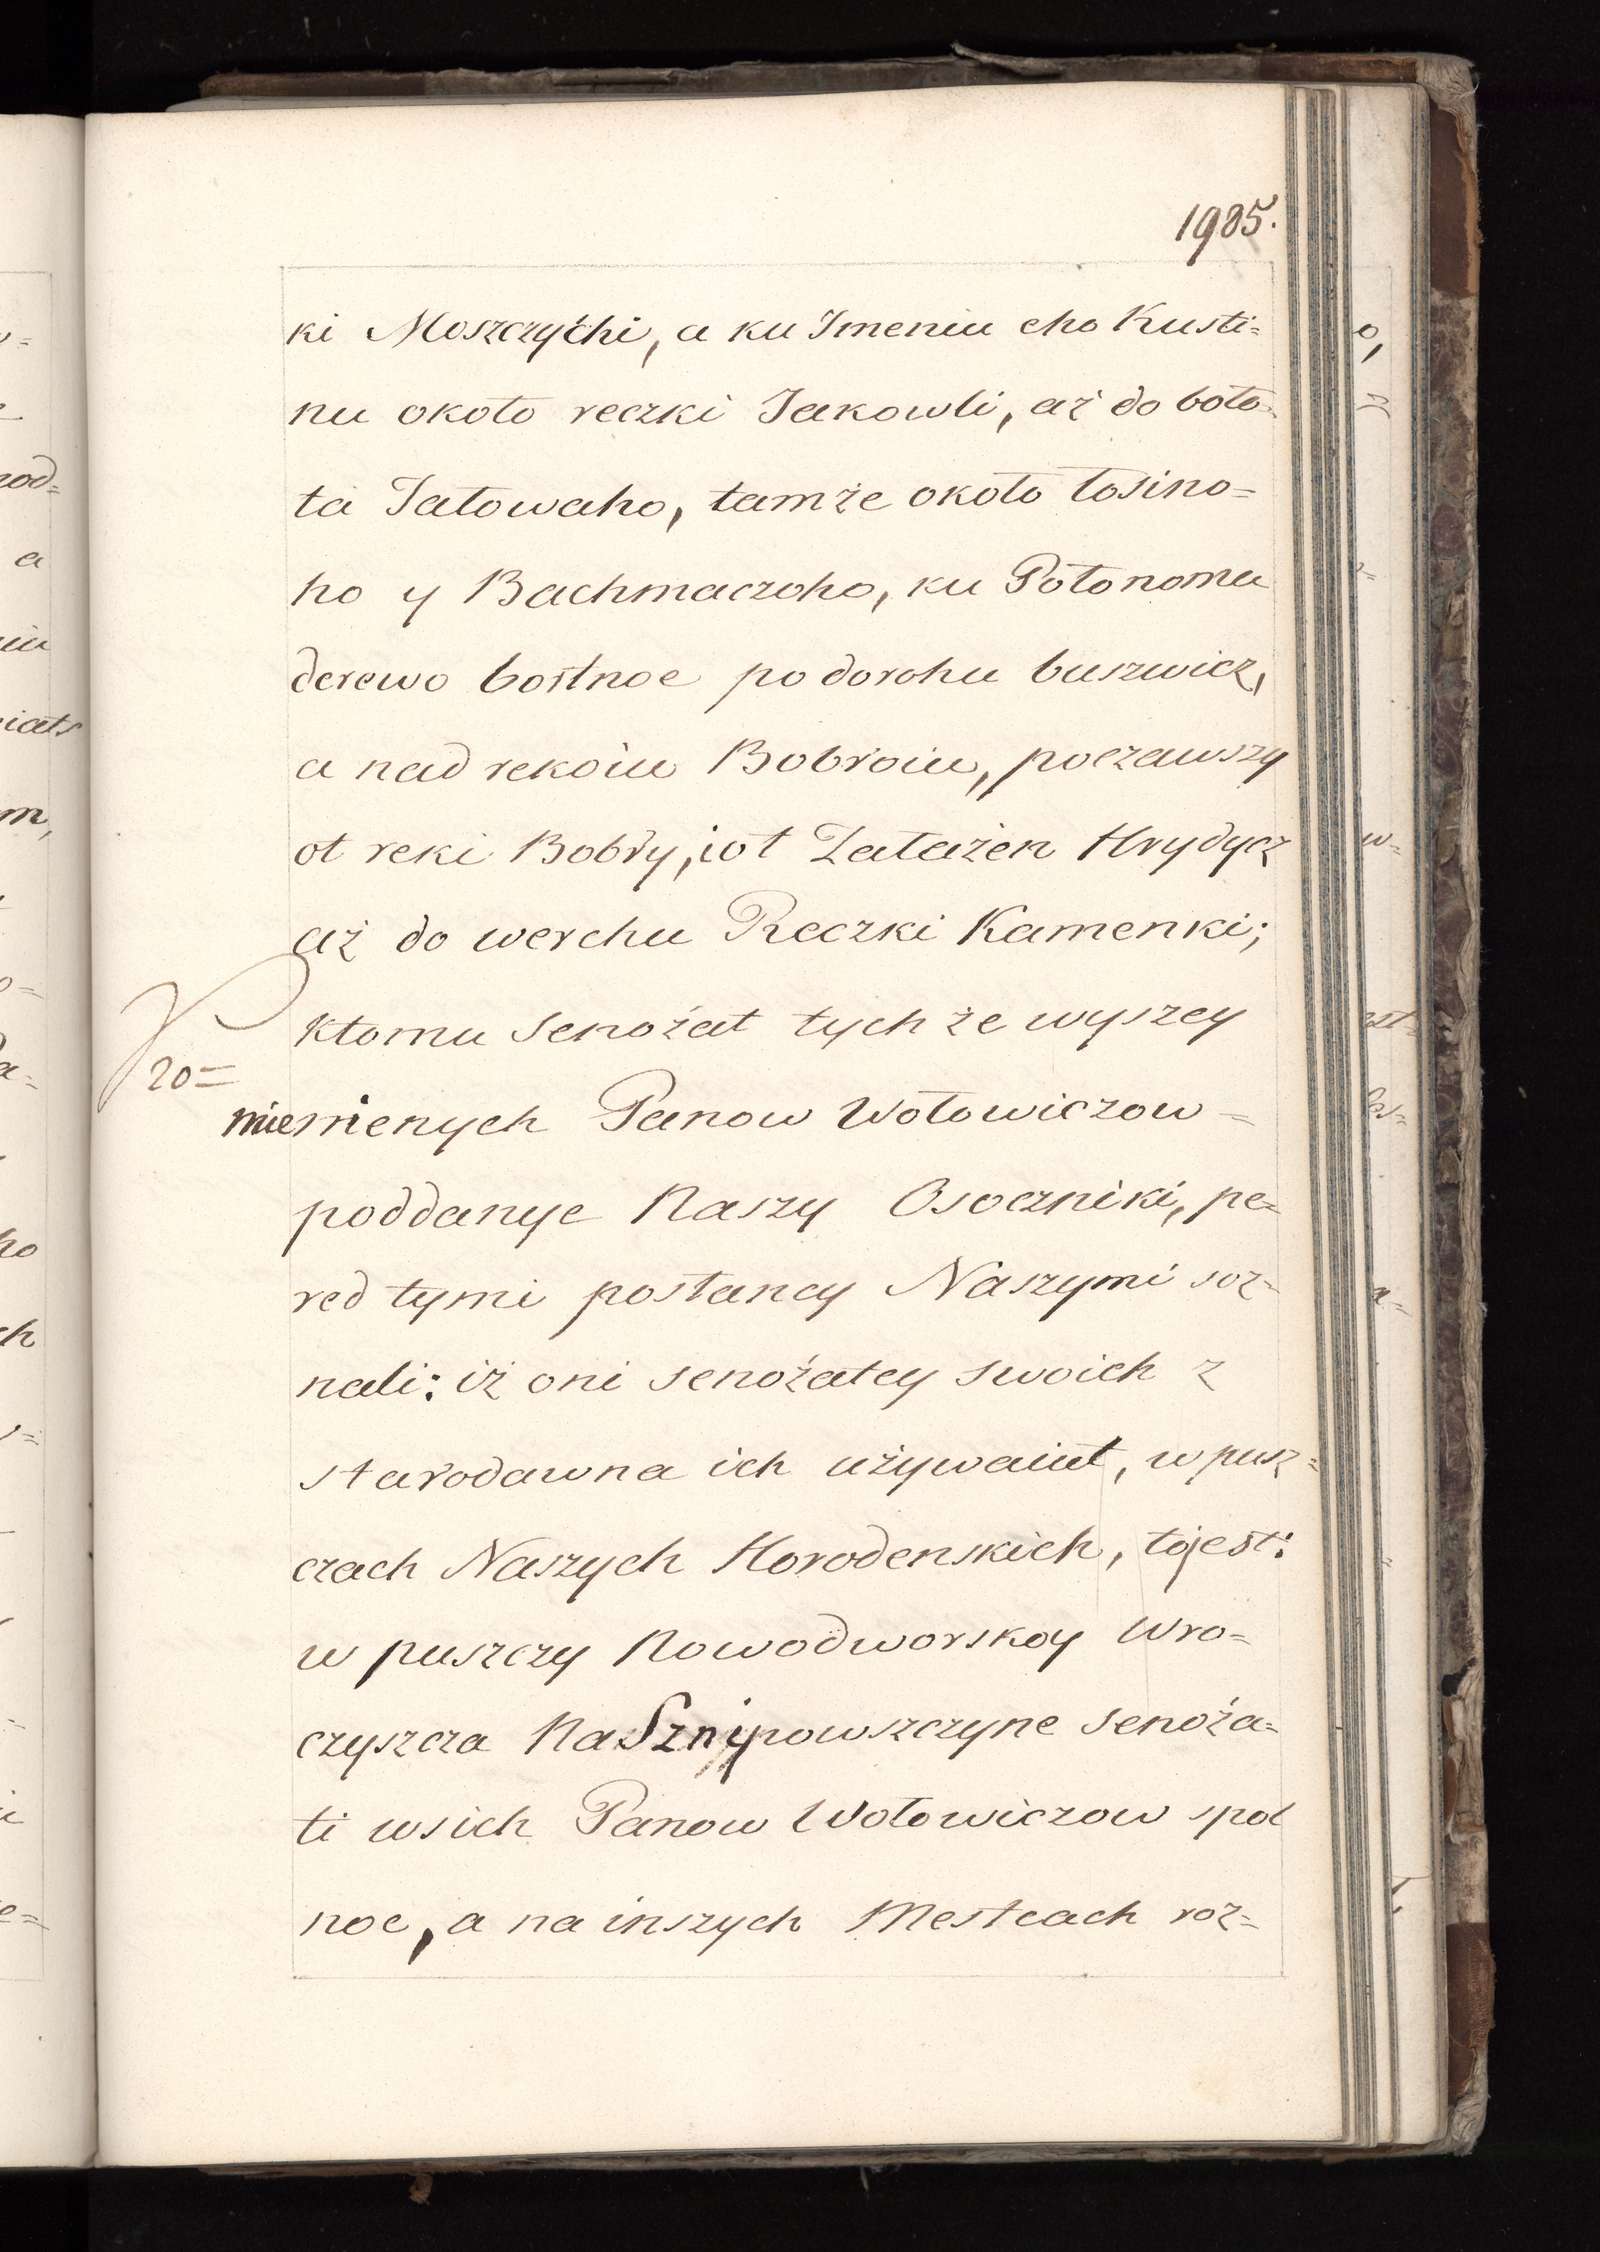 1985.
ki Moszczychi, a ku Imeniu eho Kusti=
nu około reczki Jakowli, aż do boło=
ta Jałowaho, tamże około łosino=
ho y Bachmaczoho, ku Połonomu
derewo bortnoe po dorohu buszwicz,
a nad rekoiu Bobroiu, poczawszy
ot reki Bobry, i ot Załażen Hrydycz
aż do werchu Reczki Kamenki;
ktomu Senożat tych że wyszey
20=
mienienych Panow Wołowiczow=
poddanye Naszy Osoczniki, pe=
red tymi posłancy Naszymi soz=
nali: iż oni senożatey swoich z
starodawna ich używaiut, w pusz=
czach Naszych Horodenskich, tojest:
w puszczy Nowodworskoy Wro=
czyszcza Na Sznipowszczyne senoża=
ti wsich Panow Wołowiczow spol
noe, a na inszych Mestcach roz=